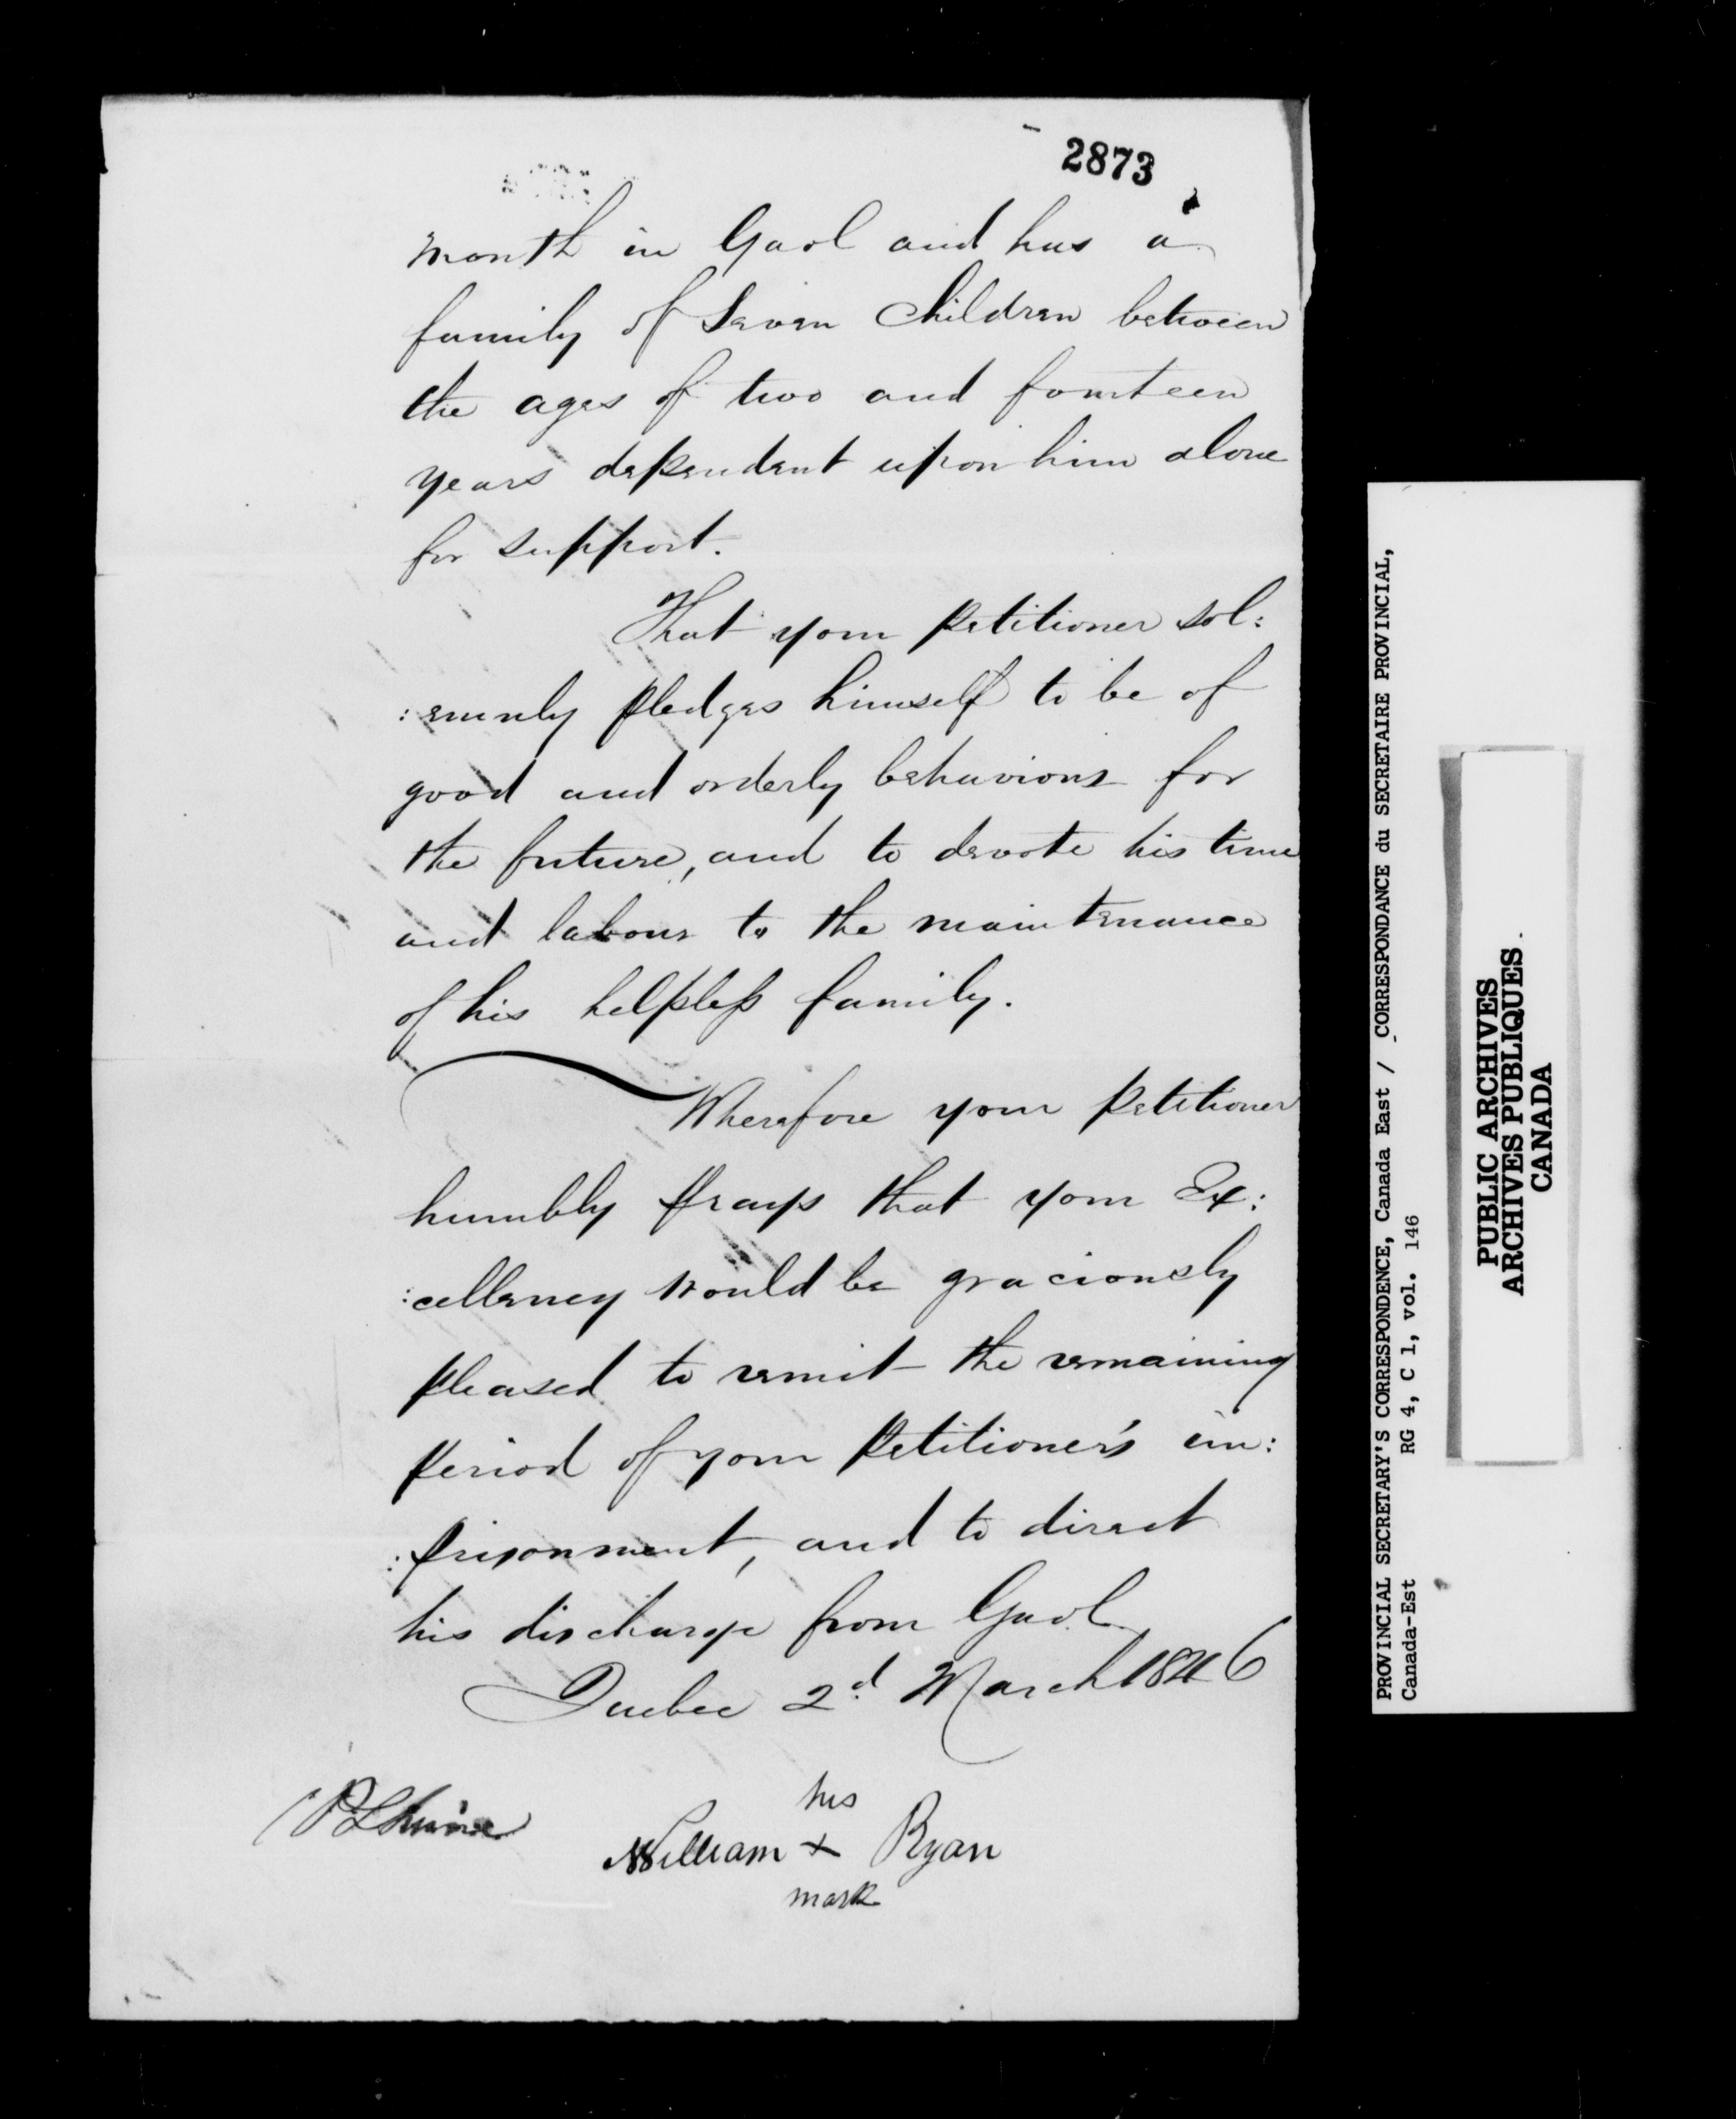 2873
month in Gaol and has a
family of Seven Children between
the ages of two and fourteen
years dependent upon him alone
for support.
That your petitioner sol:
:emnly pledges himself to be of
good and orderly behaviour for
the future, and to devote his time
and labour to the maintenance
of his helpless family.
Wherefore your petitioner
humbly prays that your Ex:
:cellency would be graciously
pleased to remit the remaining
period of your petitioner's im:
:prisonment, and to direct
his discharge from Gaol
Quebec 2d March 1846
his
William + Ryan
mark
PROVINCIAL SECRETARY'S CORRESPONDENCE, Canada East / CORRESPONDANCE du SECRETAIRE PROVINCIAL,
Canada-Est RG 4, C 1, vol. 146
PUBLIC ARCHIVES
ARCHIVES PUBLIQUES
CANADA